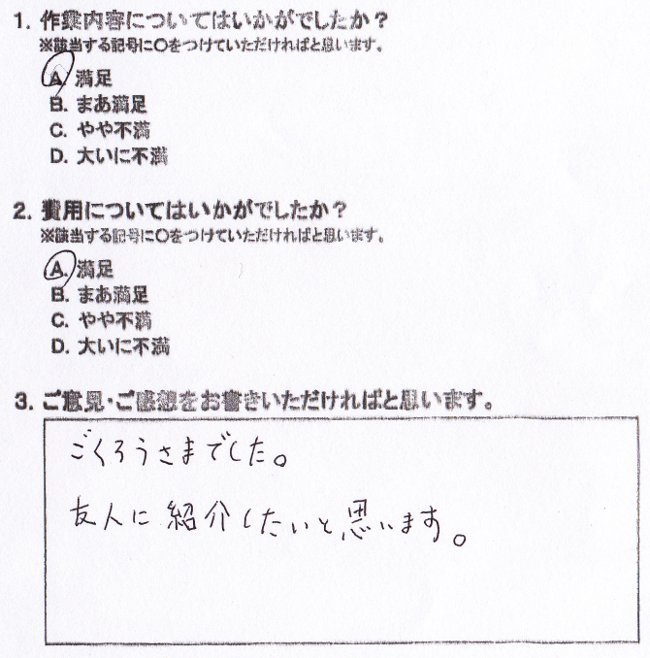 1. 作業内容についてはいかがでしたか？
※該当する記号に〇をつけていただければと思います。
A. 満足
B. まあ満足
C. やや不満
D. 大いに不満
2. 費用についてはいかがでしたか？
※該当する記号に〇をつけていただければと思います。
A. 満足
B. まあ満足
C. やや不満
D. 大いに不満
3. ご意見・ご感想をお書きいただければと思います。
ごくろうさまでした。
友人に紹介したいと思います。